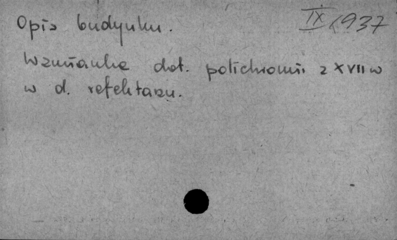 Opis budynku.
IX 1937
Wzmianka dot. polichromii z XVII w
w d. refektarzu.